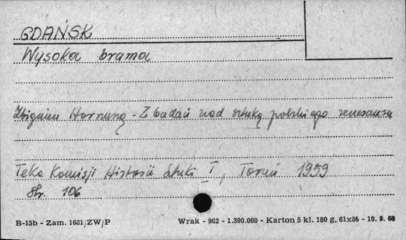 GDAŃSK
Wysoka brama
Zbigniew Hornung - Z badań nad sztuką polskiego renesansu
Teka Komisji Historii Sztuki I, Toruń 1959
Str. 106
B-15b - Zam. 1631/ZW/P Wrak - 962 - 1.300.000 - Karton 5 kl. 180 g, 61x86 - 10. 9. 60